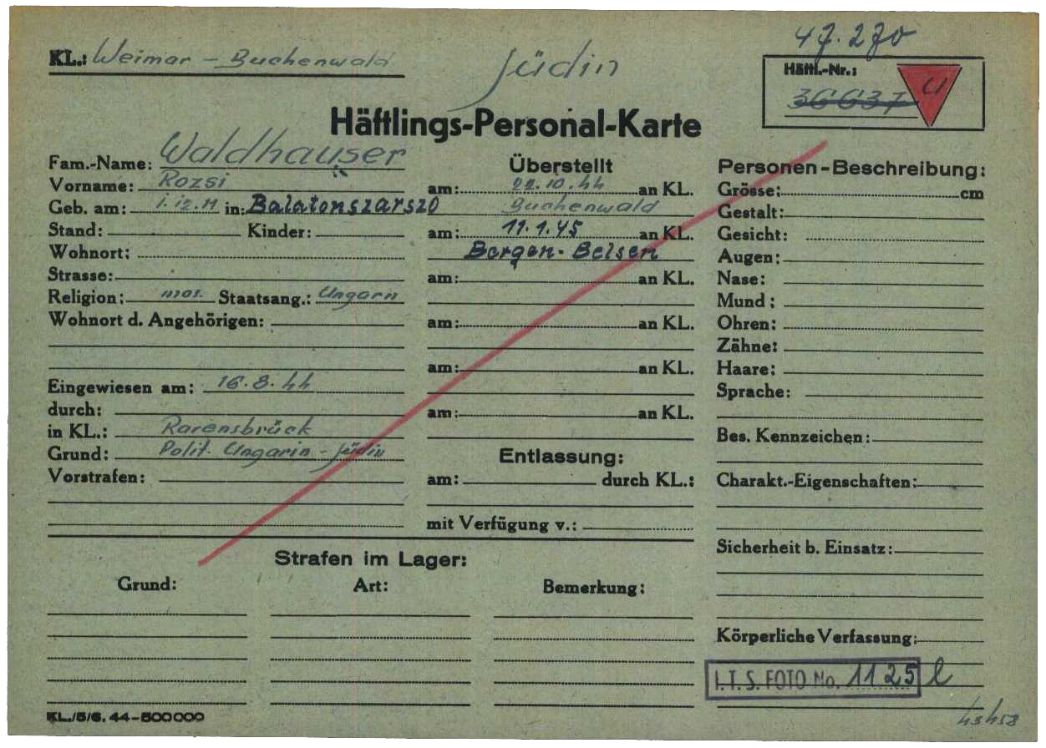 47.270
KL.: Weimar - Buchenwald
Jüdin
Häftl.-Nr.:
36637
U
Häftlings-Personal-Karte
Fam.-Name: Waldhauser
Vorname: Rozsi
Geb. am: 1.12.11 in: Balatonszarszo
Stand: Kinder:
Wohnort:
Strasse:
Religion: mos. Staatsang.: Ungarn
Wohnort d. Angehörigen:
Eingewiesen am: 16.8.44
durch:
in KL.: Ravensbrück
Grund: Polit. Ungarin-Jüdin
Vorstrafen:
Überstellt
am: 22.10.44 an KL.
Buchenwald
am: 11.1.45 an KL.
Bergen-Belsen
am: an KL.
am: an KL.
am: an KL.
am: an KL.
Entlassung:
am: durch KL.:
mit Verfügung v.:
Personen-Beschreibung:
Grösse: cm
Gestalt:
Gesicht:
Augen:
Nase:
Mund:
Ohren:
Zähne:
Haare:
Sprache:
Bes. Kennzeichen:
Charakt.-Eigenschaften:
Sicherheit b. Einsatz:
Körperliche Verfassung:
Strafen im Lager:
Grund: Art: Bemerkung:
I.T.S. FOTO No. 1125 l
KL./5/6. 44-500000